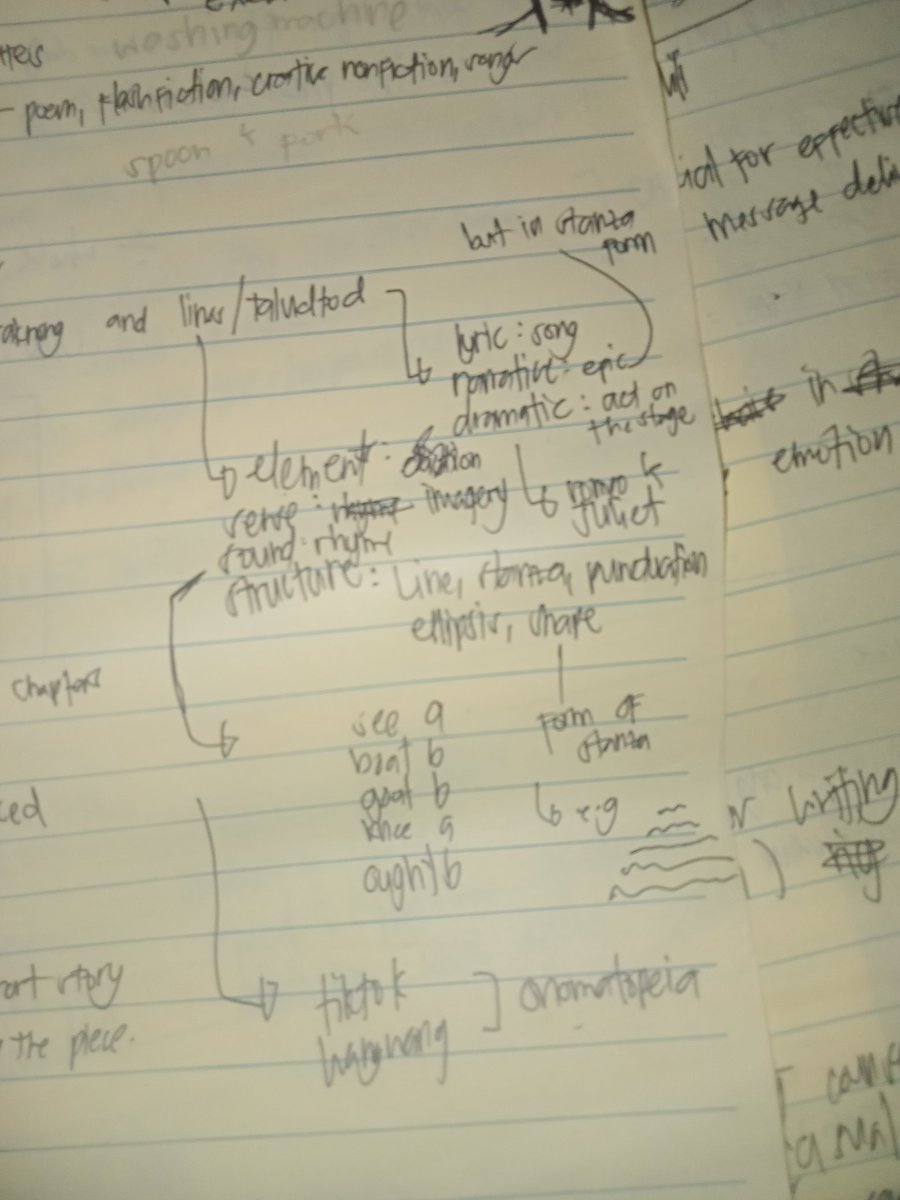 washing machine
- poem, flash fiction, creative nonfiction, songs
spoon & pork
but in stanza
form
and lines/taludtod
lyric: song
narrative: epic
dramatic: act on
the stage
element:
sense: imagery
romeo &
juliet
sound: rhyme
structure: Line, stanza, punctuation
ellipsis, shape
chapters
see a
boat b
goat b
knee a
ought b
Form of
stanza
e.g
short story
the piece.
tiktok
onomatopeia
for effective
message
in
emotion
writing